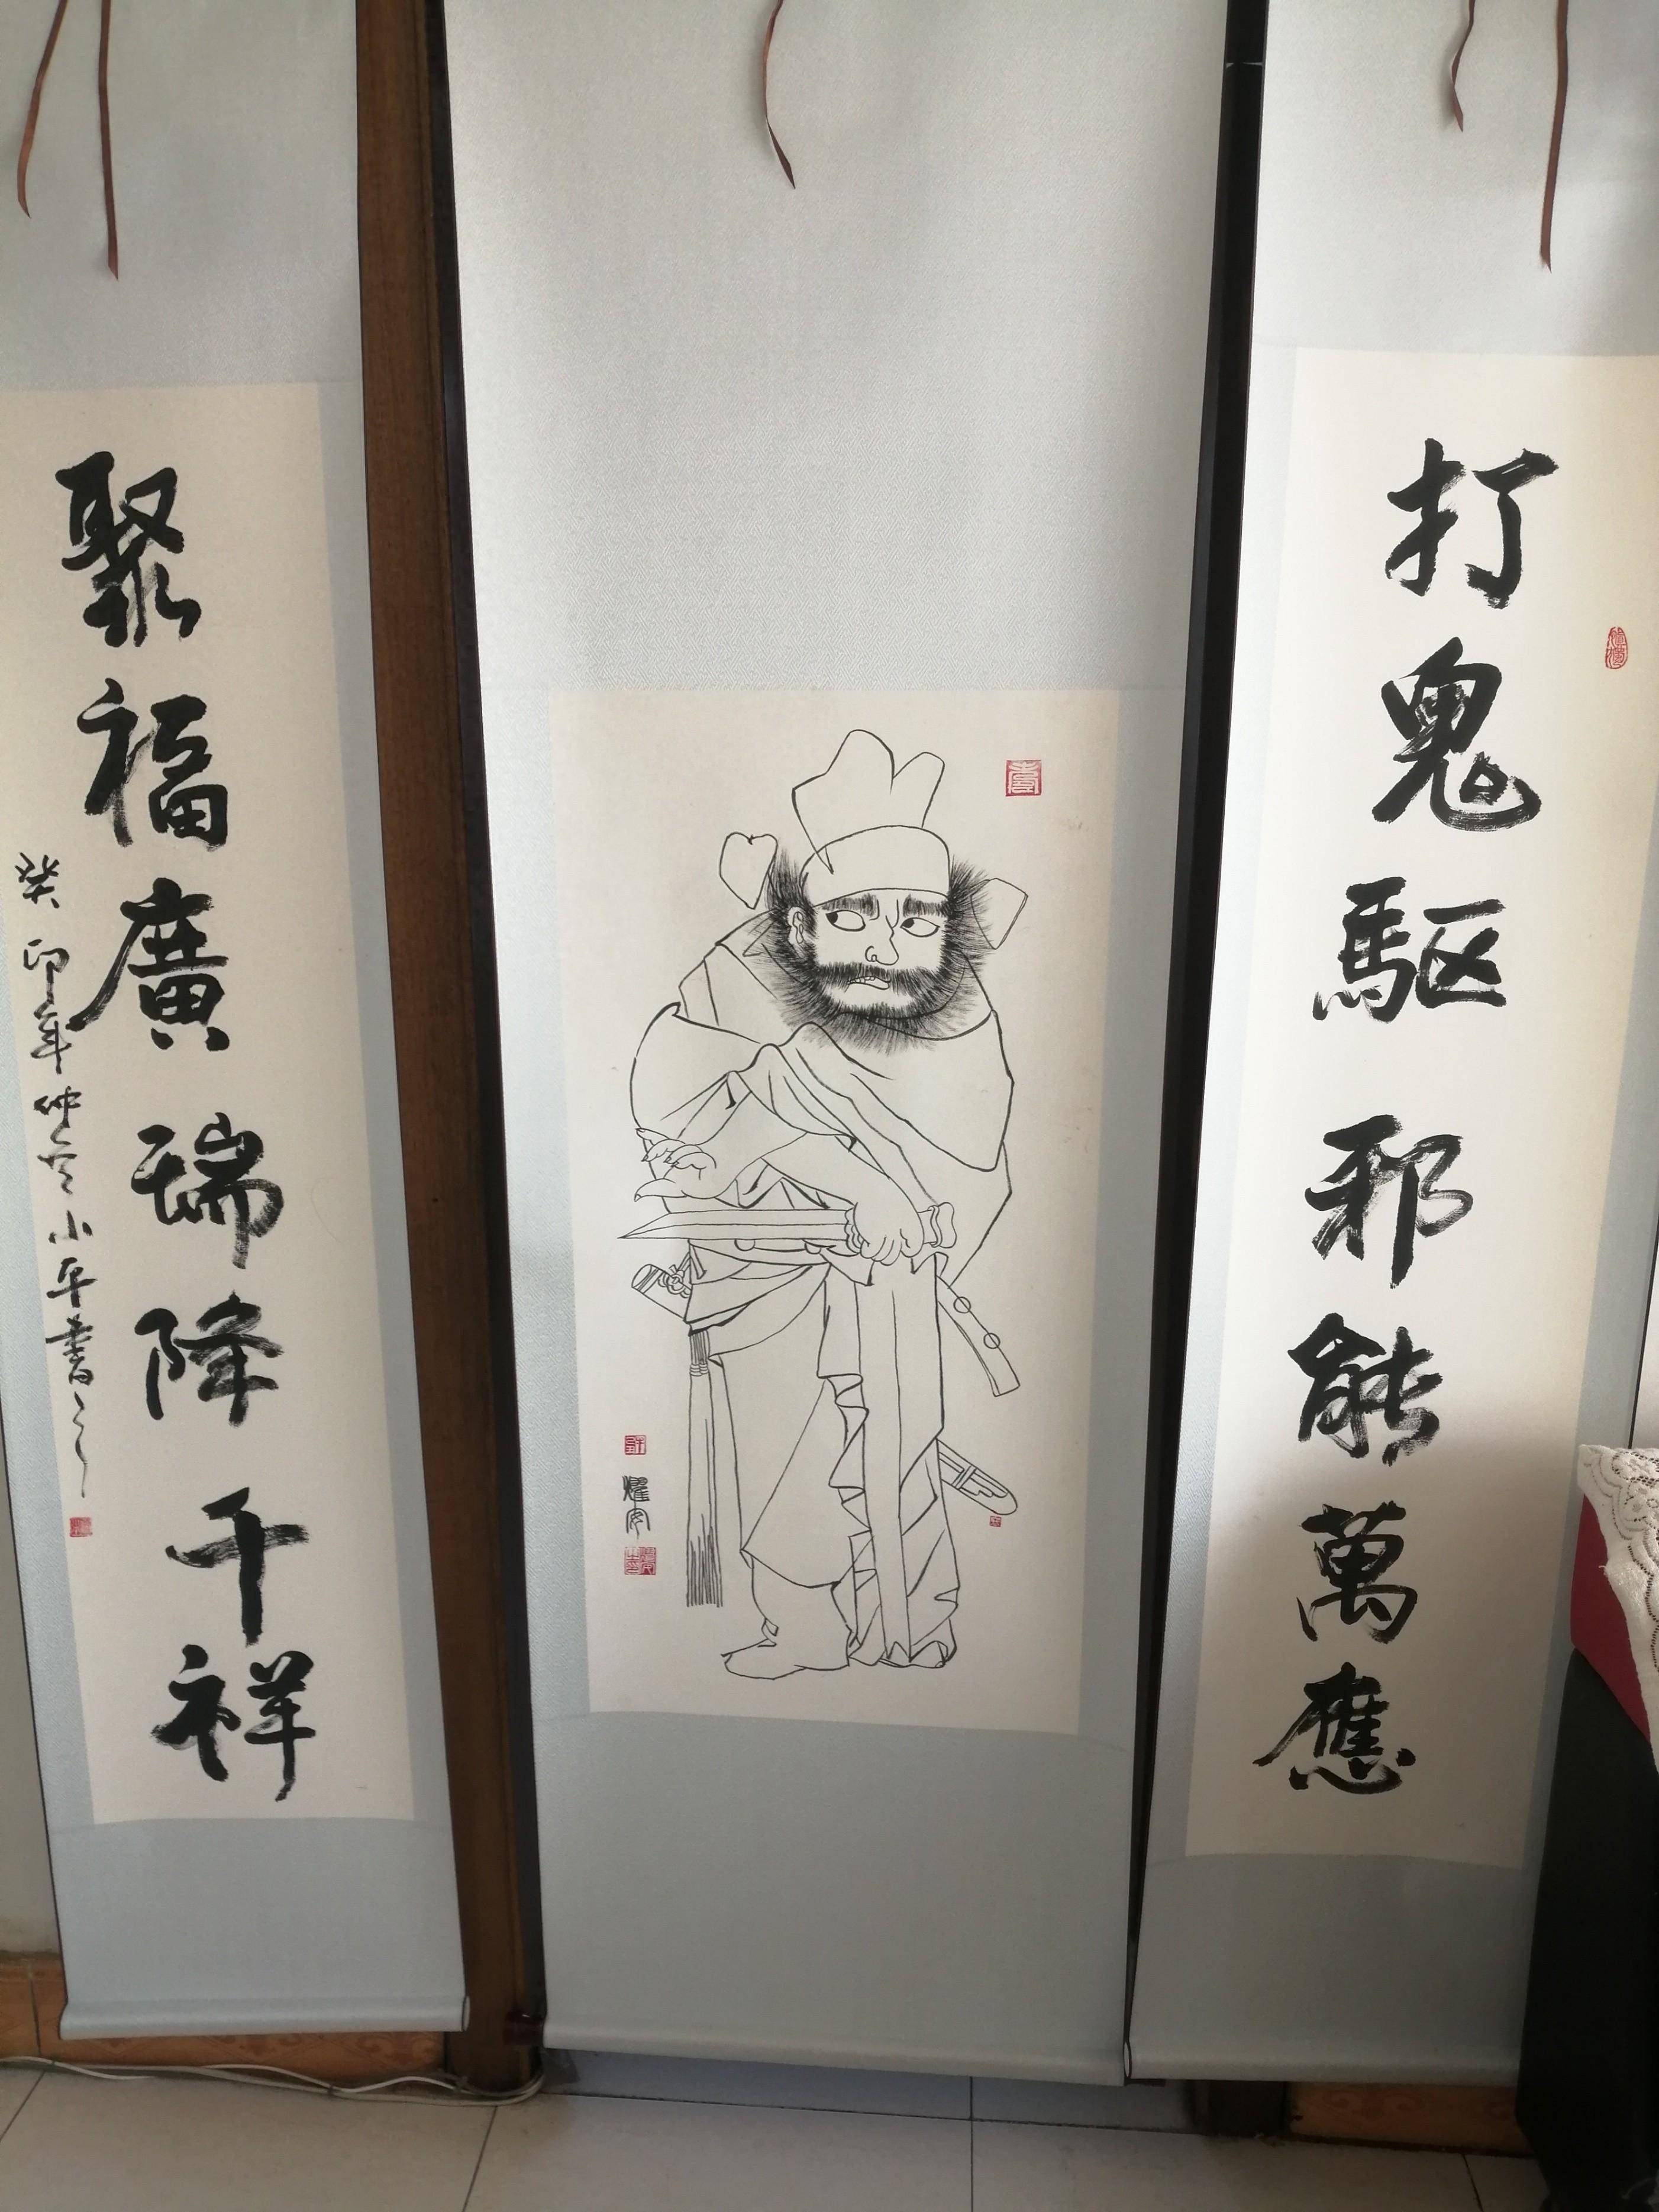 打鬼驅邪能萬應
燿安
聚福廣瑞降千祥
癸卯年仲冬小平書